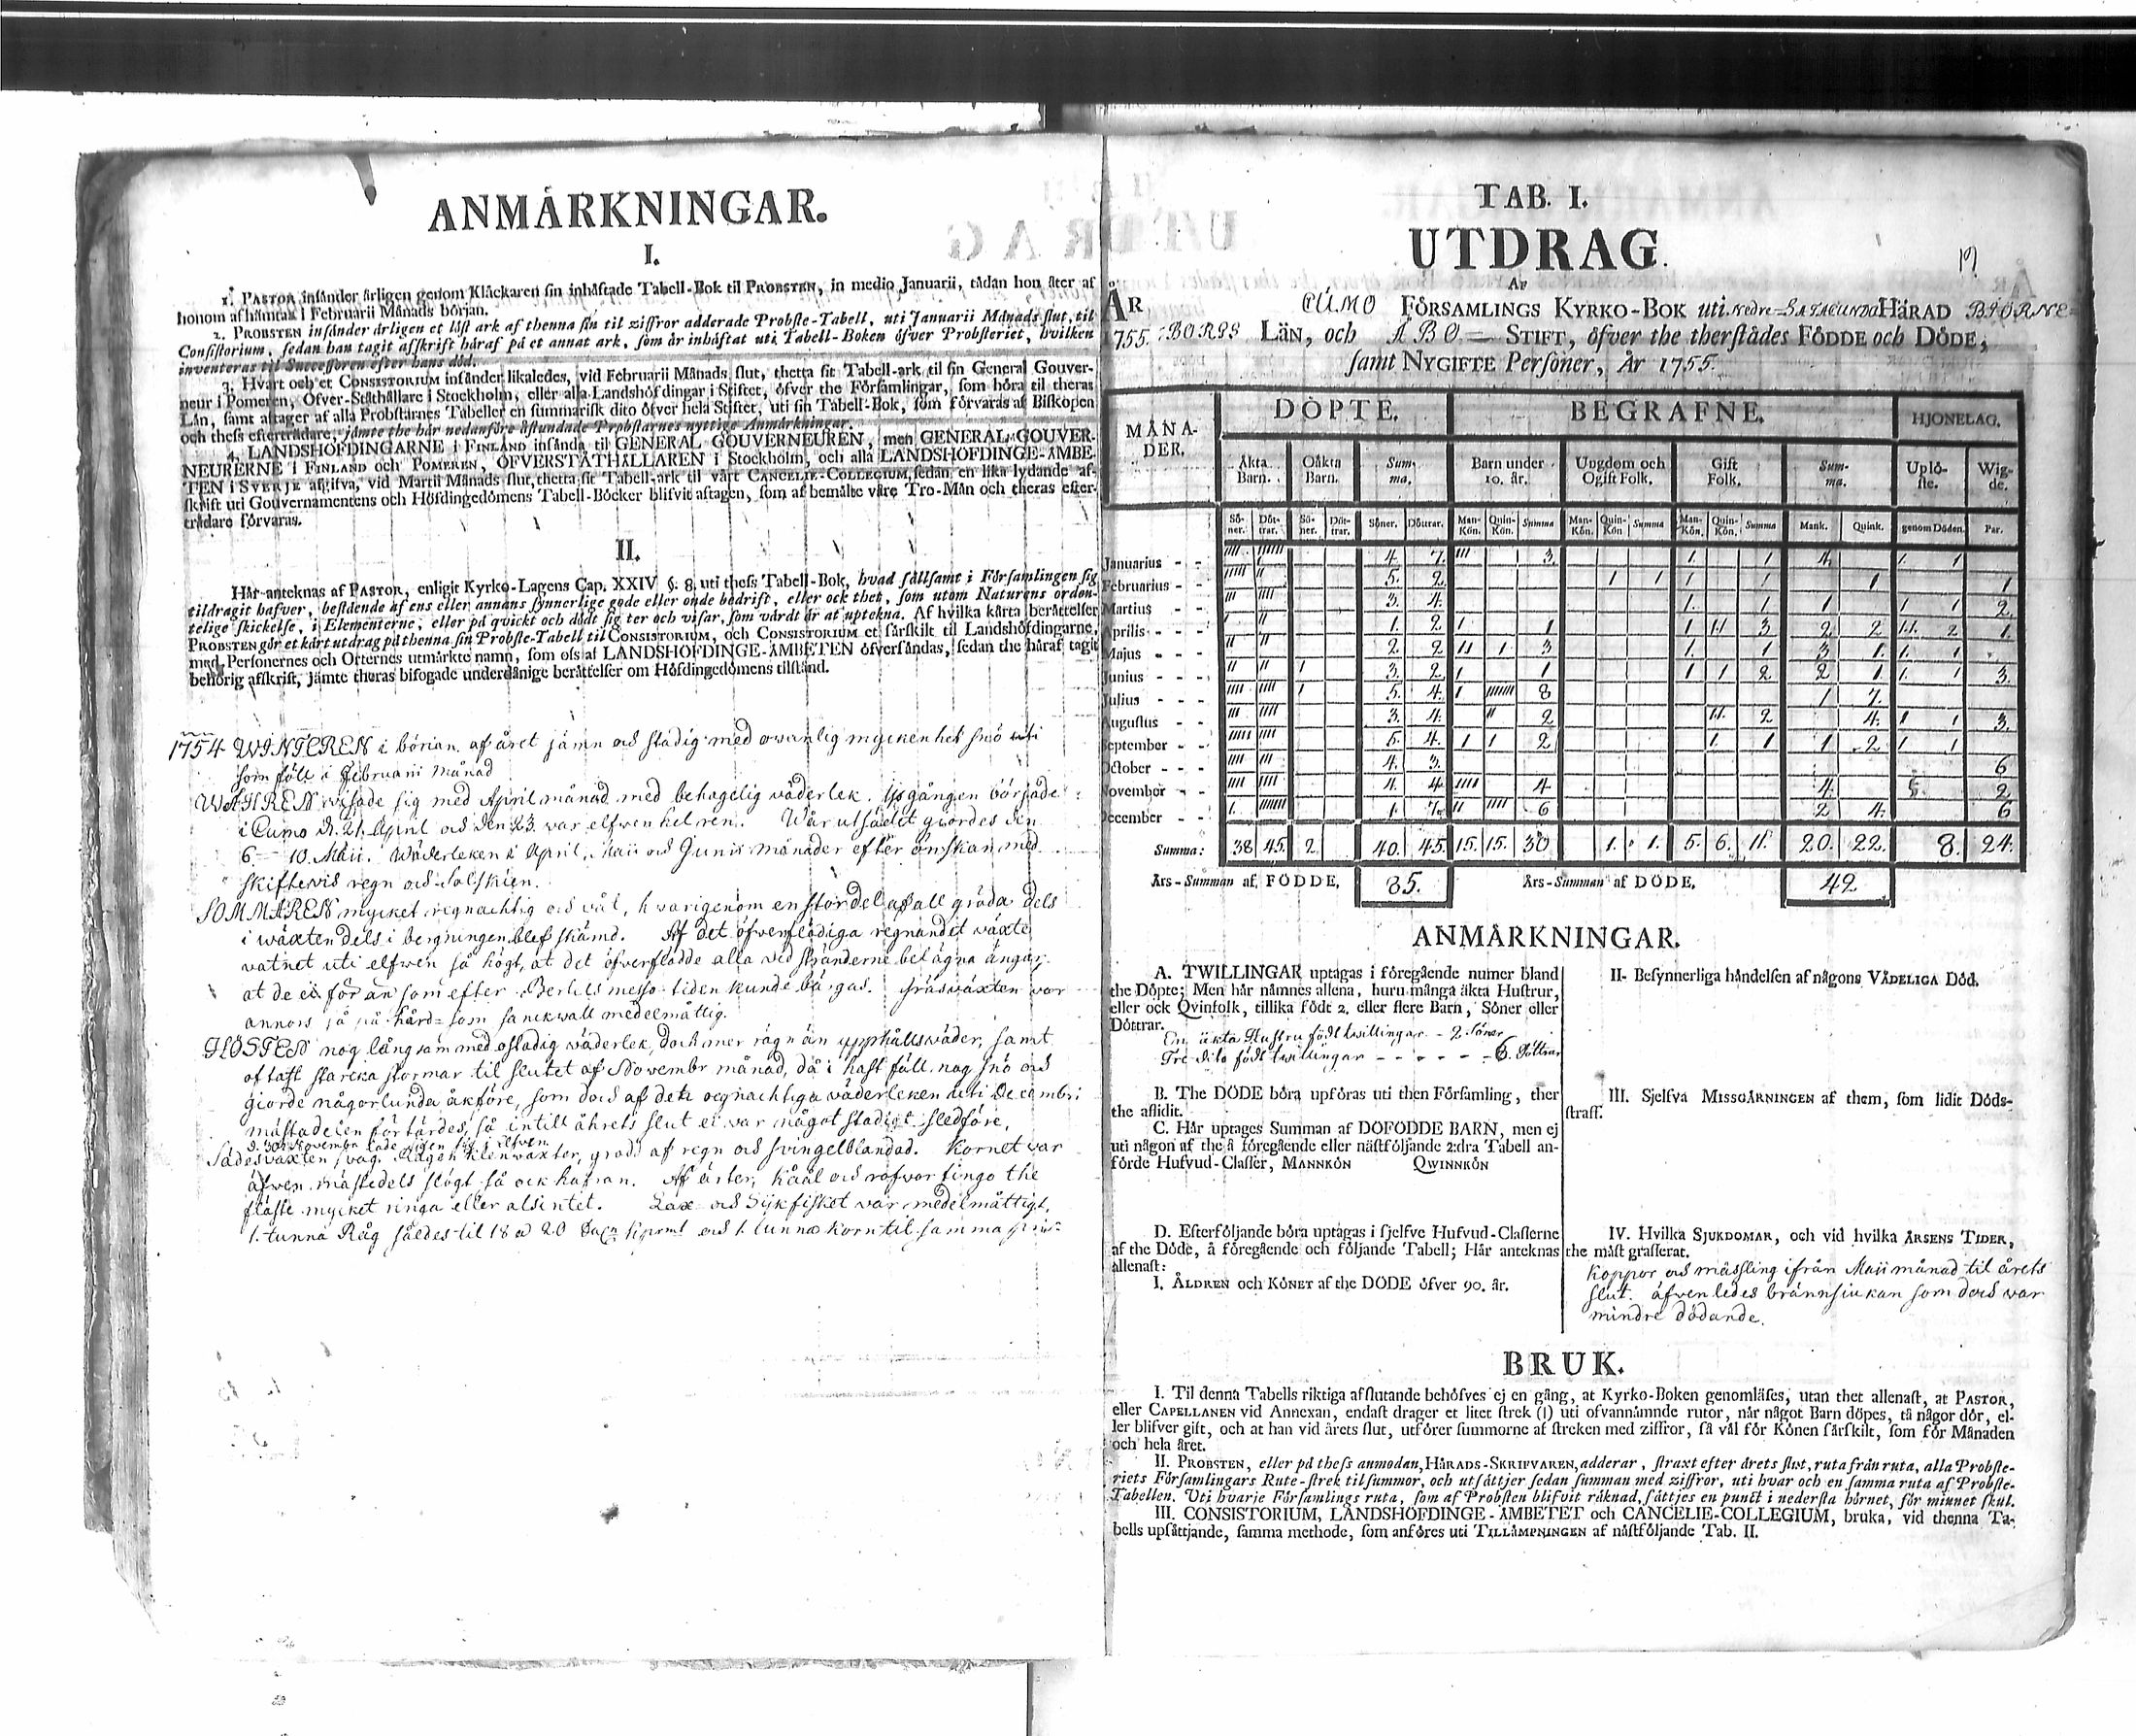 ANMÄRKNINGAR.
I.
1. PASTOR insänder årligen genom Klåckaren sin inhäftade Tabell-Bok til PROBSTEN, in medio Januarii, tådan hon åter af
honom afhämtas i Februarii Månads början.
2. PROBSTEN insänder årligen et löst ark af thenna sin til ziffror adderade Probste-Tabell, uti Januarii Månads slut, til
Consistorium, sedan han tagit afskrift håraf på et annat ark, som är inhäftat uti Tabell-Boken öfver Probsteriet, hvilken
inventeras til Successoren efter hans död.
3. Hvart och et CONSISTORIUM insänder likaledes, vid Februarii Månads slut, thetta sit Tabell-ark til sin General Gouver-
neur i Pomeren, Öfver-Ståthållare i Stockholm, eller alla Landshöfdingar i Stiftet, öfver the Församlingar, som höra til theras
Län, samt aftager af alla Probstarnes Tabeller en summarisk dito öfver hela Stiftet, uti sin Tabell-Bok, som förvaras af Biskopen
och thess efterträdare, jämte the här nedanföre åstundade Probstarnes nyttige Anmärkningar.
4. LANDSHÖFDINGARNE i FINLAND insända til GENERAL GOUVERNEUREN, men GENERAL GOUVER-
NEURERNE i FINLAND och POMEREN, ÖFVERSTÅTHÅLLAREN i Stockholm, och alla LANDSHÖFDINGE-ÄMBE-
TEN i SVERJE afgifva, vid Martii Månads slut, thetta sit Tabell-ark til vårt CANCELIE-COLLEGIUM, sedan en lika lydande af-
skrift uti Gouvernamentens och Höfdingedömens Tabell-Böcker blifvit aftagen, som af bemälte våre Tro-Män och theras efter-
trädare förvaras.
II.
Här anteknas af PASTOR, enligit Kyrko-Lagens Cap. XXIV §. 8. uti thess Tabell-Bok, hvad sällsamt i Församlingen sig
tildragit hafver, bestående af ens eller annans synnerlige gode eller onde bedrift, eller ock thet, som utom Naturens orden-
telige skickelse, i Elementerne, eller på qvickt och dödt sig ter och visar, som värdt är at uptekna. Af hvilka kårta berättelser
PROBSTEN gör et kårt utdrag på thenna sin Probste-Tabell til CONSISTORIUM, och CONSISTORIUM et särskilt til Landshöfdingarne,
med Personernes och Orternes utmärkte namn, som oss af LANDSHÖFDINGE-ÄMBETEN öfversändas, sedan the håraf tagit
behörig afskrift, jämte theras bifogade underdånige berättelser om Höfdingedömens tilstånd.
1754 WINTEREN i börian af året jämn och stadig med owanlig myckenhet snö uti
som föll i Februarii månad
WÅHREN wisade sig med April månad med behagelig väderlek. Isgången började
i Cumo d. 21. April och den 23. war elfwen hel ren. Wår utsädet giordes den
6. - 10. Maii. Wäderleken i April, Maii och Junii månader efter önskan med
skiftevis regn och Solskien.
SOMMAREN mycket regnachtig och våt, hwarigenom en stor del af all gröda dels
i wäxten dels i bergningen blef skämd. Af det öfverflödiga regnandet växte
vatnet uti elfwen så högt, at det öfverflödde alla vid stränderne belägna ängar,
at de ei för än som efter Bertils messo tiden kunde bärgas. Gräsväxten var
annors så på hård- som sanckwall medelmåttig.
HÖSTEN nog långsam med ostadig väderlek, doch mer rägn än upphållsväder, samt
oftast starcka stormar til slutet af Novembr månad, då i hast föll nog snö och
giorde någorlunda åkföre, som doch af den regnachtiga väderleken uti Decembri
måstadelen förtärdes, så intill åhrets slut ei var något stadigt slädföre.
d. 30 Novembr lade isen sig i elfven
Sädesväxten svag. Rågen klenväxter, grodd af regn och svingelblandad. Kornet var
äfwen mästedels slögt så ock hafran. Af ärter, kåål och rofvor fingo the
fläste mycket ringa eller alsintet. Lax och Sijkfisket var medelmåttigt.
1. tunna Råg såldes til 18 a 20 Dal. Kopprmt och 1. tunna korn til samma pris
TAB. I.
UTDRAG
AF
ÅR 1755. CUMO FÖRSAMLINGS KYRKO-BOK uti Nedre-SATACUNDA HÄRAD BIÖRNE-
BORGS LÄN, och ÅBO STIFT, öfver the therstädes FÖDDE och DÖDE,
samt NYGIFTE Personer, År 1755.
MÅNA-DER. DÖPTE. BEGRAFNE. HJONELAG.
Äkta Barn. Oäkta Barn. Summa. Barn under 10. år. Ungdom och Ogift Folk. Gift Folk. Summa. Uplöste. Wigde.
Söner. Döttrar. Söner. Döttrar. Söner. Döttrar. Man-Kön. Quin-Kön. Summa Man-Kön. Quin-Kön. Summa Man-Kön. Quin-Kön. Summa Mank. Quink. genom Döden. Par.
Januarius - - IIII IIIIIII 4. 7. III 3. 1. 1 4. 1. 1
Februarius - - IIIII II 5. 2. 1 1 1 1 1
Martius - - III IIII 3. 4. 1. 1. 1 1 1 2.
Aprilis - - I II 1. 2 1 1 1 11 3 2 2 11. 2 1.
Majus - - II II 2. 2 11 1 3 1. 1 3 1. 1. 1
Junius - - II II 1 3. 2. 1 1 1 1 2 2 1. 1. 1 3.
Julius - - IIII IIII 1 5. 4. 1 IIIIIII 8 1 7.
Augustus - - III IIII 3. 4. II 2 11. 2 4. 1 1 3.
September - - IIIII IIII 5. 4. 1 1 2 1. 1 1 2 1 1
October - - - IIII III 4. 3. 6
November - - IIII IIII 4. 4. IIII 4 4. 2
December - - 1. IIIIIII 1. 7. II IIII 6 2 4. 6
Summa: 38 45. 2. 40. 45. 15. 15. 30 1. 1. 5. 6. 11. 20. 22. 8. 24.
Års-Summan af FÖDDE, 85. Års-Summan af DÖDE, 42
ANMÄRKNINGAR.
A. TWILLINGAR uptagas i föregående numer bland
the Döpte; Men här nämnes allena, huru många äkta Hustrur,
eller ock Qvinfolk, tillika födt 2. eller flere Barn, Söner eller
Döttrar.
En äkta Hustru födt twillingar - 2. Söner
Tre dito födt twillingar - - - - - 6. Döttrar
B. The DÖDE böra upföras uti then Församling, ther
the aflidit.
C. Här uptages Summan af DÖFÖDDE BARN, men ej
uti någon af the å föregående eller nästföljande 2:dra Tabell an-
förde Hufvud-Classer, MANNKÖN QWINNKÖN
D. Efterföljande böra uptagas i sjelfve Hufvud-Classerne
af the Döde, å föregående och följande Tabell; Här anteknas
allenast:
I. ÅLDREN och KÖNET af the DÖDE öfver 90. år.
II. Besynnerliga händelsen af någons VÅDELIGA Död.
III. Sjelfva MISSGÄRNINGEN af them, som lidit Döds-
straff.
IV. Hvilka SJUKDOMAR, och vid hvilka ÅRSENS TIDER,
the mäst grasserat.
Koppor och mässling ifrån Maii månad til årets
slut. äfvenledes brännsiukan som doch war
mindre dödande.
BRUK.
I. Til denna Tabells riktiga afslutande behöfves ej en gång, at Kyrko-Boken genomläses, utan thet allenast, at PASTOR,
eller CAPELLANEN vid Annexan, endast drager et litet strek (I) uti ofvannämnde rutor, når något Barn döpes, tå någor dör, el-
ler blifver gift, och at han vid årets slut, utförer summorne af streken med ziffror, så väl för Könen särskilt, som för Månaden
och hela året.
II. PROBSTEN, eller på thess anmodan, HÄRADS-SKRIFVAREN, adderar, straxt efter årets slut, ruta från ruta, alla Probste-
riets Församlingars Rute-strek til summor, och utsättjer sedan summan med ziffror, uti hvar och en samma ruta af Probste-
Tabellen. Uti hvarje Församlings ruta, som af Probsten blifvit räknad, sättjes en punct i nedersta hörnet, för minnet skul.
III. CONSISTORIUM, LANDSHÖFDINGE-ÄMBETET och CANCELIE-COLLEGIUM, bruka, vid thenna Ta-
bells upsättjande, samma methode, som anföres uti TILLÄMPNINGEN af nästföljande Tab. II.